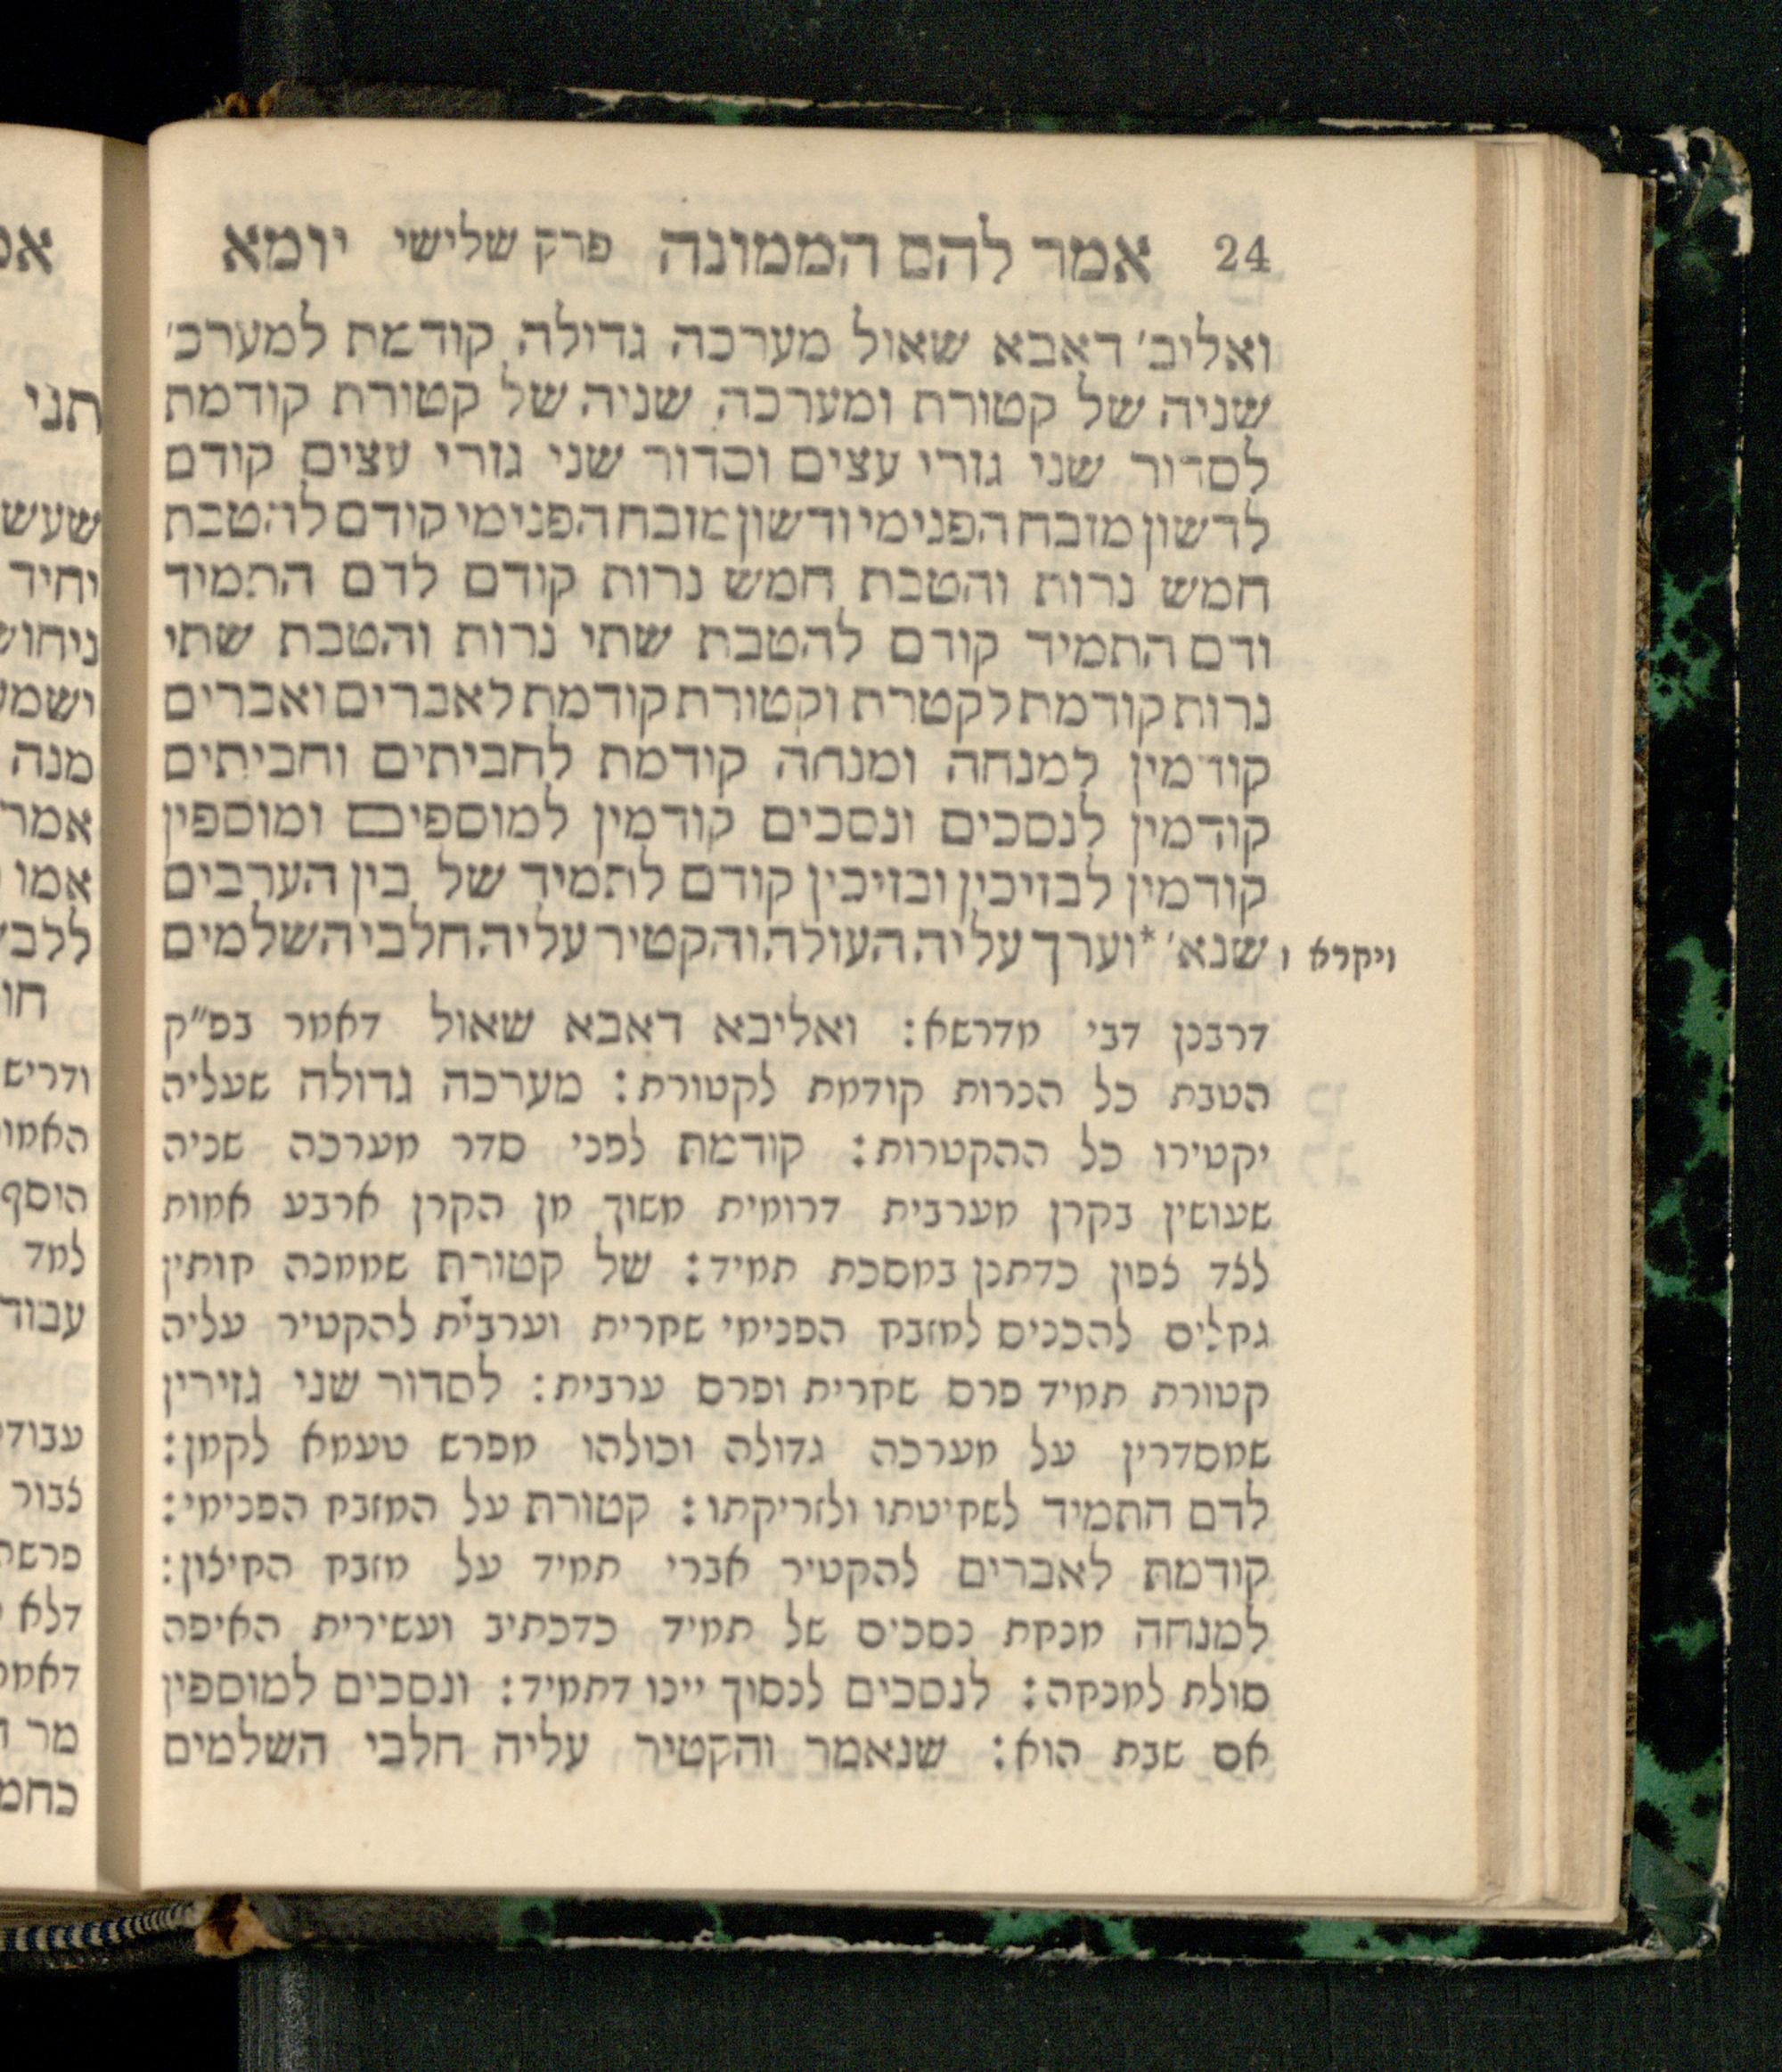 24 אמר להם הממונה פרק שלישי יומא
ואליב׳ דאבא שאול מערכה גדולה קודמת למערכ׳
שניה של קטורת ומערכה שניה של קטורת קודמת
לסדור שני גזרי עצים וסדור שני גזרי עצים קודם
לדשון מזבח הפנימי ודשון מזבח הפנימי קודם להטבת
חמש נרות והטבת חמש נרות קודם לדם התמיד
ודם התמיד קודם להטבת שתי נרות והטבת שתי
נרות קודמת לקטרת וקטורת קודמת לאברים ואברים
קודמין למנחה ומנחה קודמת לחביתים וחביתים
קודמין לנסכים ונסכים קודמין למוספים ומוספין
קודמין לבזיכין ובזיכין קודם לתמיד של בין הערבים
שנא׳ *וערך עליה העולה והקטיר עליה חלבי השלמים
ויקרא ו
דרבנן דבי מדרשא: ואליבא דאבא שאול דאמר בפ״ק
הטבת כל הנרות קודמת לקטורת: מערכה גדולה שעליה
יקטירו כל ההקטרות: קודמת לפני סדר מערכה שניה
שעושין בקרן מערבית דרומית משוך מן הקרן ארבע אמות
לצד צפון כדתנן במסכת תמיד: של קטורת שממנה חותין
גחלים להכניס למזבח הפנימי שחרית וערבית להקטיר עליה
קטורת תמיד פרס שחרית ופרס ערבית: לסדור שני גזירין
שמסדרין על מערכה גדולה וכולהו מפרש טעמא לקמן:
לדם התמיד לשחיטתו ולזריקתו: קטורת על המזבח הפנימי:
קודמת לאברים להקטיר אברי תמיד על מזבח החיצון:
למנחה מנחת נסכים של תמיד כדכתיב ועשירית האיפה
סולת למנחה: לנסכים לנסוך יינו דתמיד: ונסכים למוספין
אם שבת הוא: שנאמר והקטיר עליה חלבי השלמים